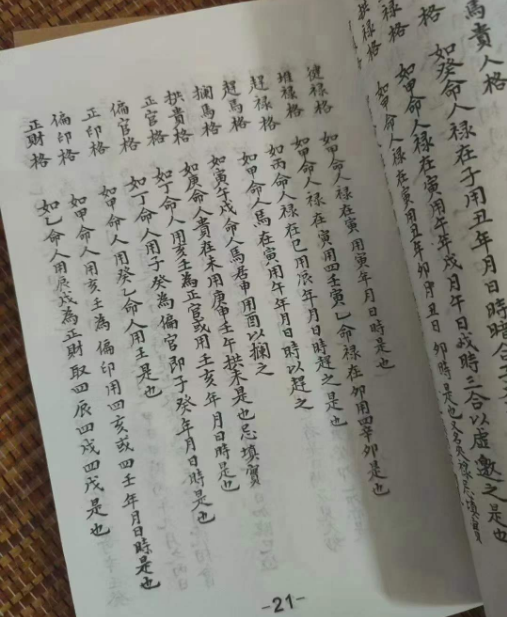 馬貴人格
如癸命人禄在子用丑年月日時
禄格
如甲命人禄在寅用午年戌月午日戌時三合以虚邀之是也
拱禄格
如甲命人禄在寅用丑年卯月丑日卯時是也
建禄格 如甲命人禄在寅用寅年月日時是也
堆禄格 如甲命人禄在寅用四寅乙命禄在卯用四辛卯是也
趕禄格 如丙命人禄在巳用辰年月日時趕之是也
趕馬格 如甲命人馬在寅用午年月日時以趕之
攔馬格 如寅午戌命人馬居申用酉以攔之
拱貴格 如庚命人貴在未用庚申壬午拱未是也忌填實
正官格 如丁命人用亥壬為正官或用壬亥年月日時是也
偏官格 如丁命人用子癸為偏官即子癸年月日時是也
正印格 如甲命人用癸乙命人用壬是也
偏印格 如甲命人用亥壬為偏印用四亥或四壬年月日時是也
正財格 如乙命人用辰戌為正財取四辰四戌四戊是也
-21-